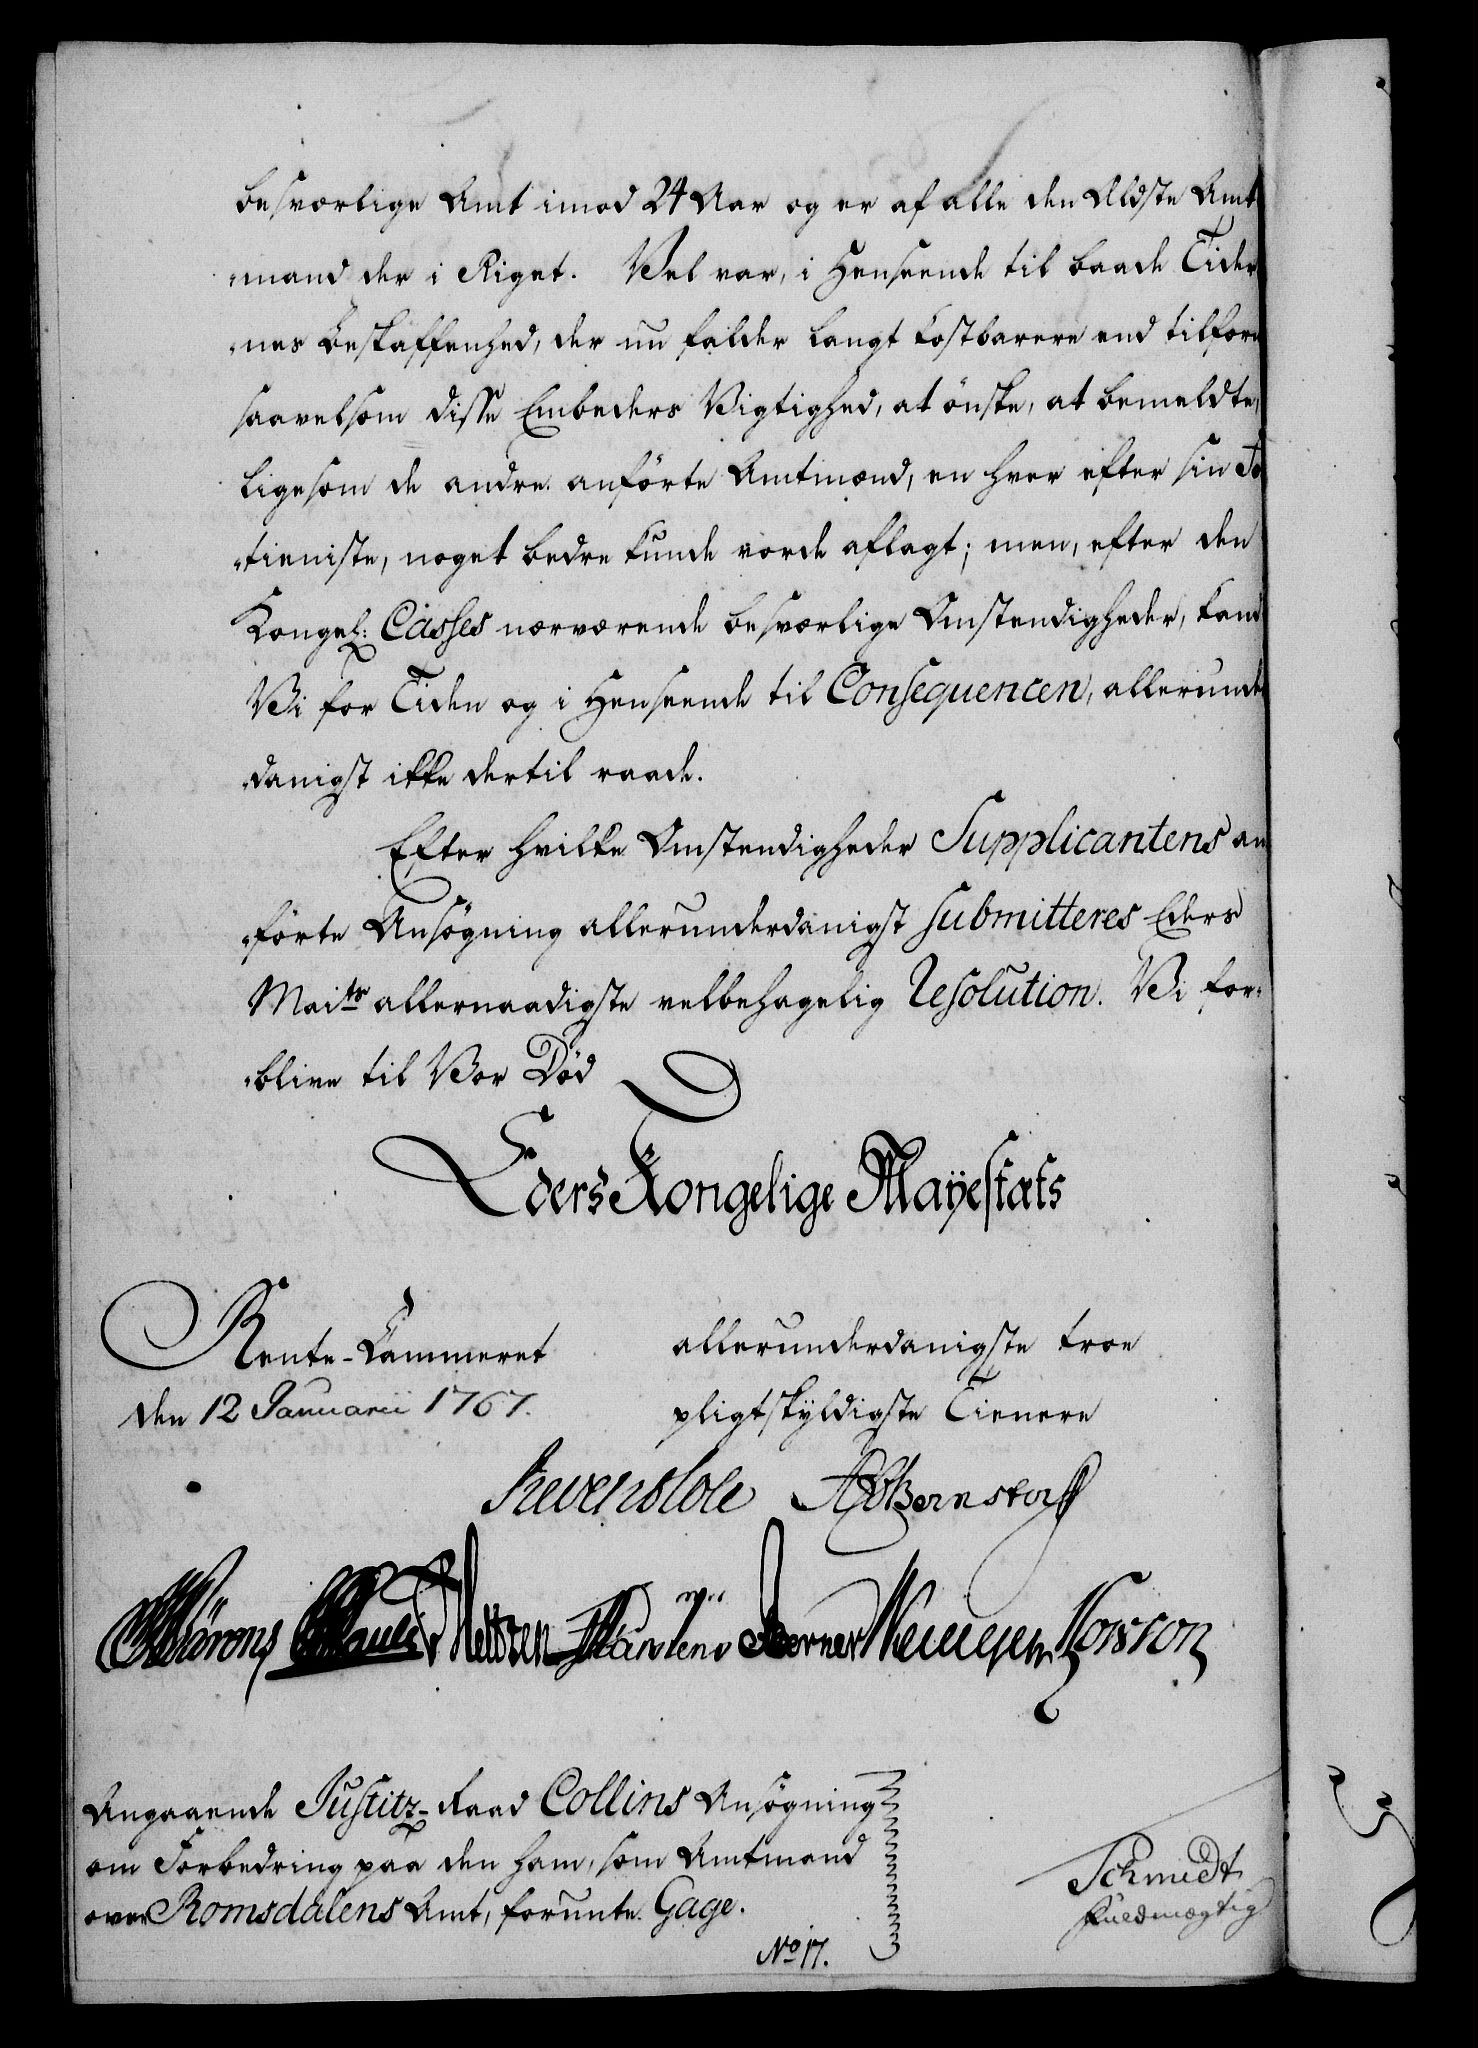 besværlige Amt imod 24 Aar og er af alle den Ældste Amt
-mand der i Riget. Vel var, i Henseende til baade Tider
-nes Beskaffenhed, der nu falder langt kostbarere end tilforn
saavelsom disse Embeders Vigtighed, at ønske, at bemeldte,
ligesom de andre anførte Amtmænd, en hver efter sin
-tieniste, noget bedre kunde vorde aflagt; men, efter den
Kongel: Casses nærværende besværlige Omstendigheder, kand
Vi for Tiden og i Henseende til Consequencen, allerunder
-danigst ikke dertil raade.
Efter hvilke Omstendigheder Supplicantens an
-førte Ansøgning allerunderdanigst submitteres Eders
Maits allernaadigste velbehagelig Resolution. Vi for-
-blive til Vor Død
Eders Kongelige Mayestæts
Rente-Cammeret
den 12 Januarii 1767.
allerunderdanigste troe
pligtskyldigste Tienere
Reventlow Bernstorff
Pauli Heltzen Martens Berner Kowron
Angaaende Justitz-Raad Collins Ansøgning
om Forbedring paa den ham, som Amtmand
over Romsdalens Amt, forunte Gage.
No 17.
Schmidt
Fuldmægtig